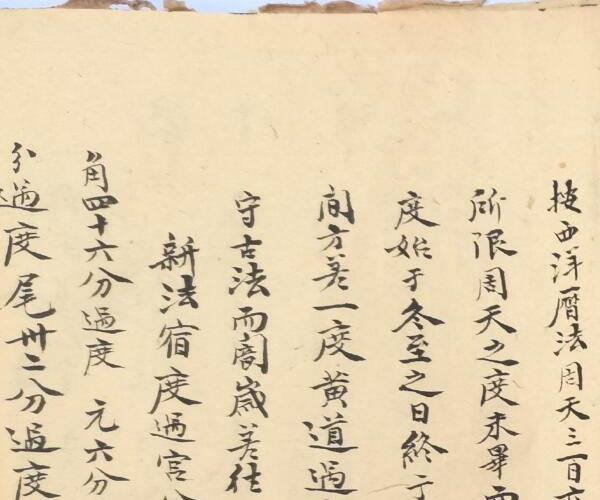 按西洋曆法周天三百度
所限周天之度未畢
度始于冬至之日終于
间方差一度黄道過
守古法而阏歲差往
新法宿度過宮
角四十六分過度 亢六分
分過度尾卅二分過度